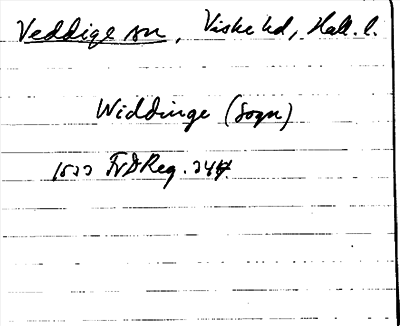 Veddige sn, Viske hd, Hall. l.
Widdinge (Sogn)
1523 FrDReg. 244.